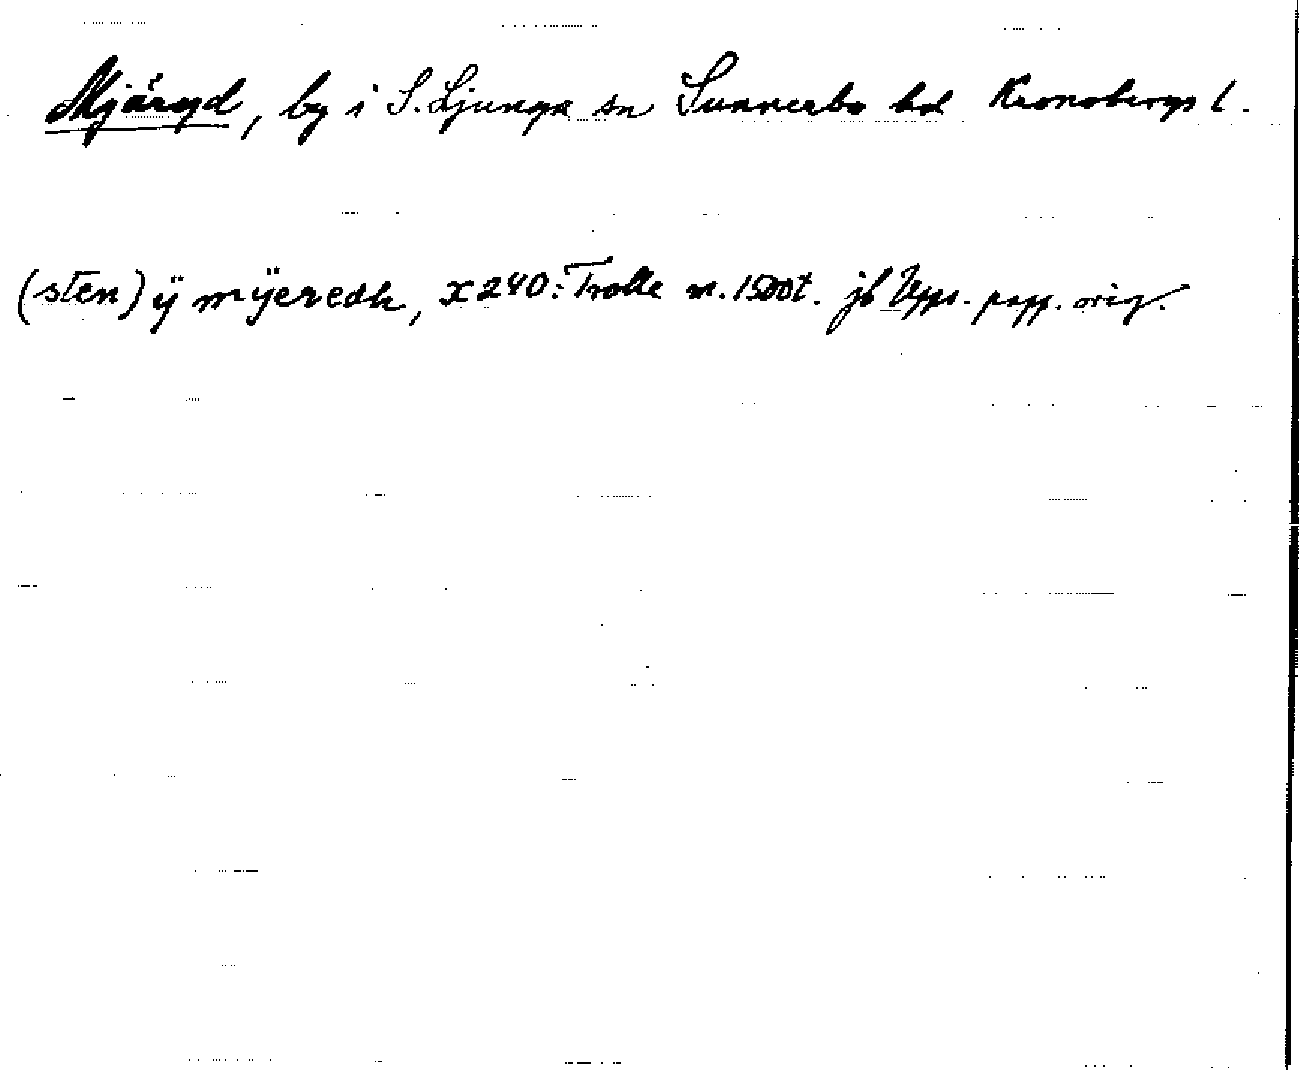 Mjäryd, by i S. Ljunga sn Sunnerbo hd Kronobergs l.
(sten) ÿ mÿeredh, x 240: Trolle m. 1500t. jb Upps. papp. orig.